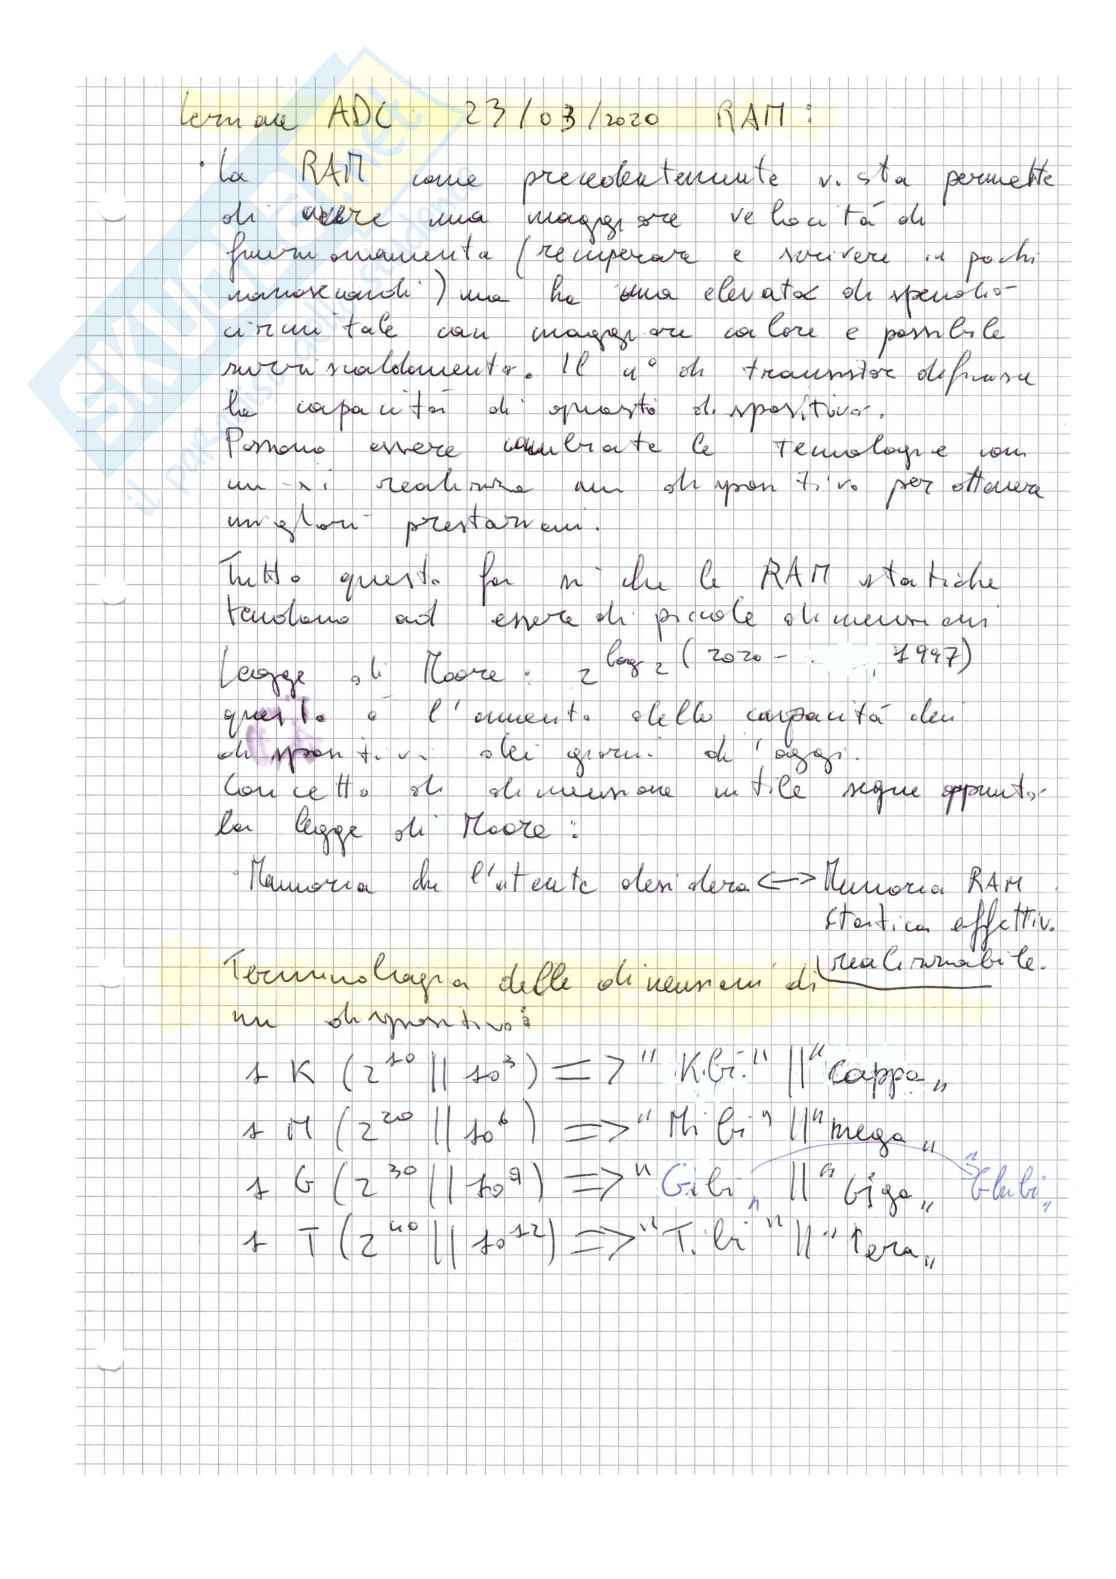 Lezione ADC 23/03/2020 RAM:
· La RAM come precedentemente vista permette
di avere una maggiore velocità di
funzionamento (recuperare e scrivere in pochi
nanosecondi) ma ha una elevata dispendio
circuitale con maggiore calore e possibile
surriscaldamento. Il n° di transistor definisce
la capacità di questo dispositivo.
Possono essere cambiate le tecnologie con
cui si realizza un dispositivo per ottenere
migliori prestazioni.
Tutto questo fa si che le RAM statiche
tendono ad essere di piccole dimensioni
Legge di Moore: 2^log2 (2020 - 1997)
questo è l'aumento della capacità dei
dispositivi dei giorni d'oggi.
Concetto di dimensione utile segue appunto
la legge di Moore:
Memoria che l'utente desidera <-> Memoria RAM
statica effettiv.
realizzabile.
Terminologia delle dimensioni di
un dispositivo:
1 K (2^10 || 10^3) => "Kibi" || "cappa"
1 M (2^20 || 10^6) => "Mibi" || "mega"
1 G (2^30 || 10^9) => "Gibi" || "Giga"
1 T (2^40 || 10^12) => "Tibi" || "Tera"
SKUOLA.net